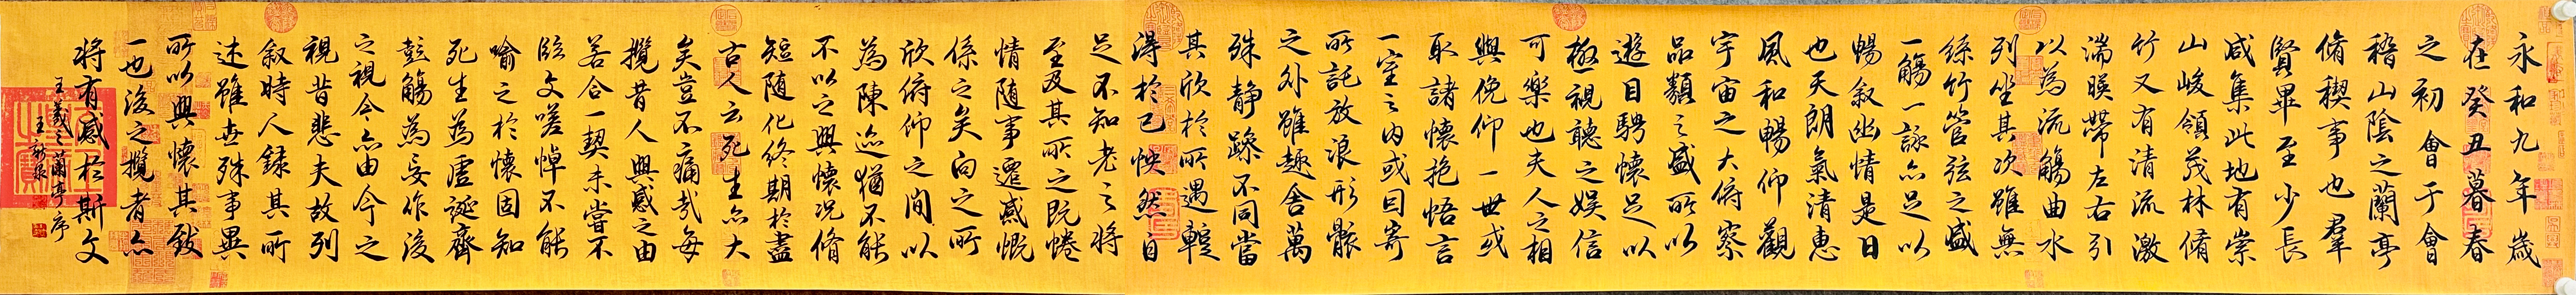 永和九年歲
在癸丑暮春
之初會于會
稽山陰之蘭亭
脩稧事也羣
賢畢至少長
咸集此地有崇
山峻領茂林脩
竹又有清流激
湍暎帶左右引
以為流觴曲水
列坐其次雖無
絲竹管弦之盛
一觴一詠亦足以
暢叙幽情是日
也天朗氣清惠
風和暢仰觀
宇宙之大俯察
品類之盛所以
遊目騁懷足以
極視聽之娛信
可樂也夫人之相
與俛仰一世或
取諸懷抱悟言
一室之内或因寄
所託放浪形骸
之外雖趣舍萬
殊静躁不同當
其欣於所遇蹔
得於己怏然自
足不知老之将
至及其所之既惓
情随事遷感慨
係之矣向之所
欣俯仰之間以
為陳迹猶不能
不以之興懷況脩
短随化終期於盡
古人云死生亦大
矣豈不痛哉每
攬昔人興感之由
若合一契未嘗不
臨文嗟悼不能
喻之於懷固知
死生為虛誕齊
彭觴為妄作後
之視今亦由今之
視昔悲夫故列
叙時人錄其所
述雖世殊事異
所以興懷其致
一也後之攬者亦
将有感於斯文
王羲之蘭亭序